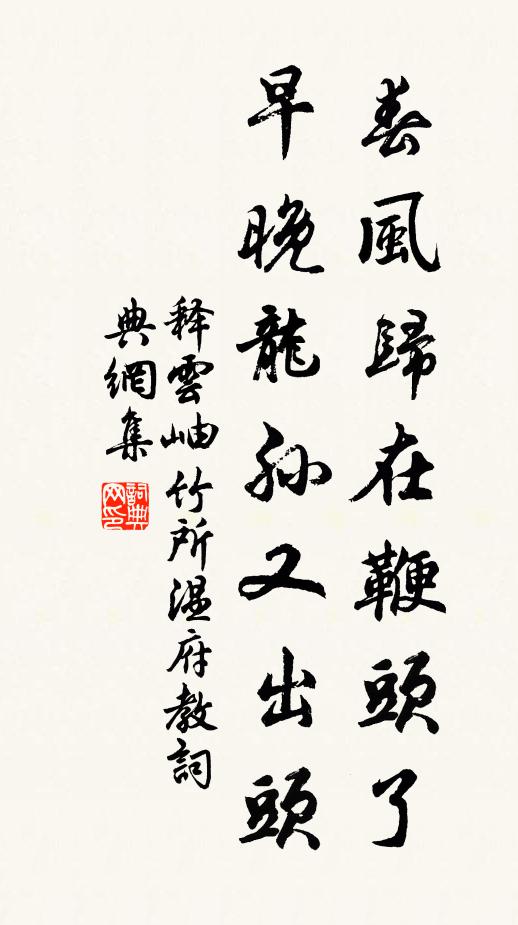 春風歸在鞭頭了
早晚龍孫又出頭
释雲岫竹所溫府教詞
典網集
詞典
网印